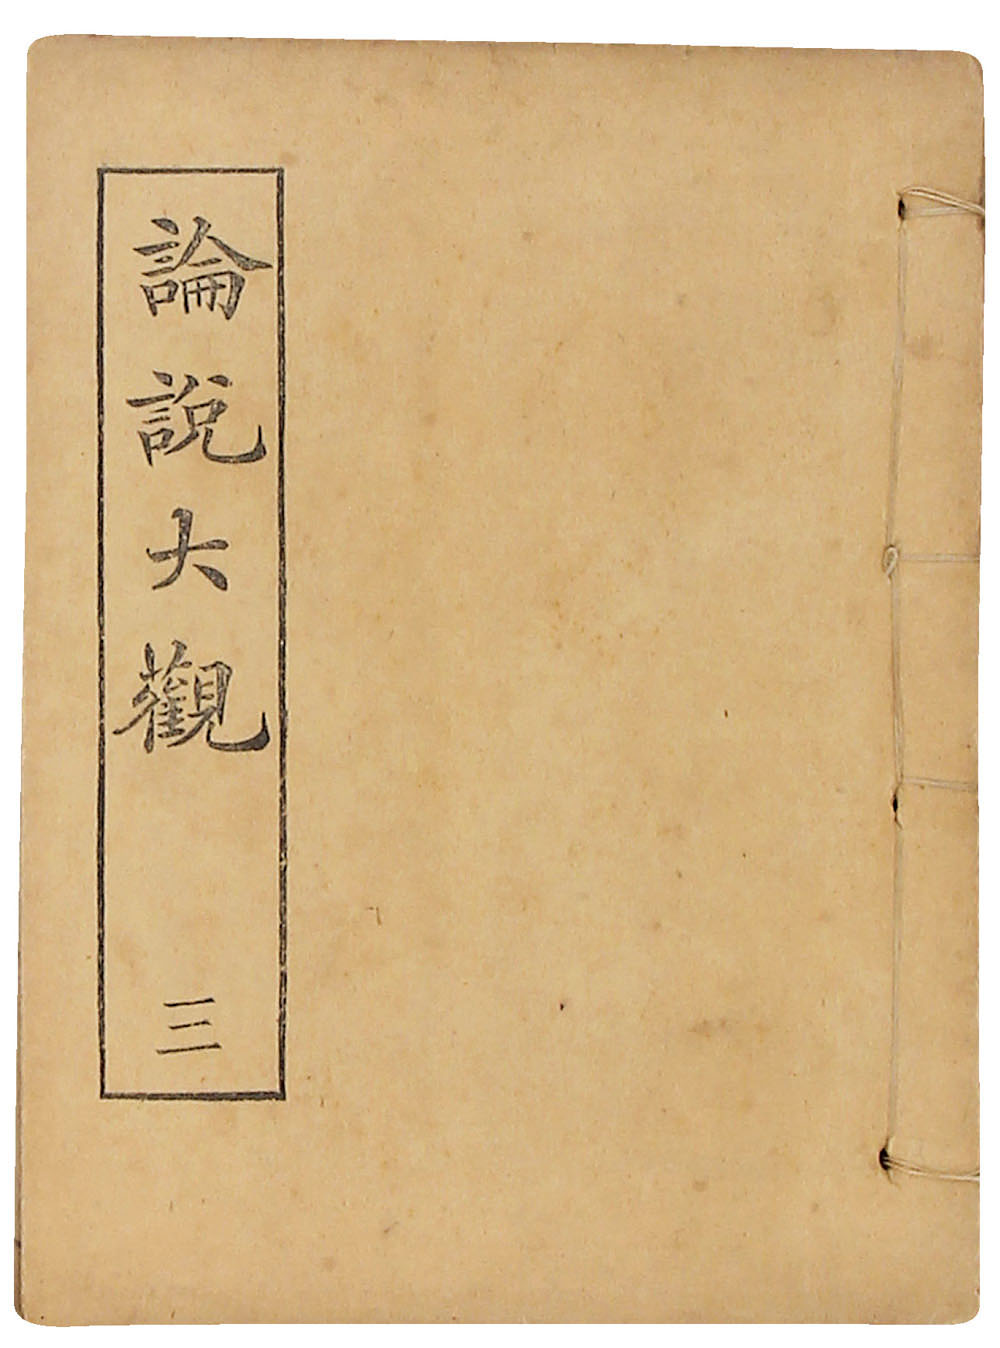 論說大觀
三